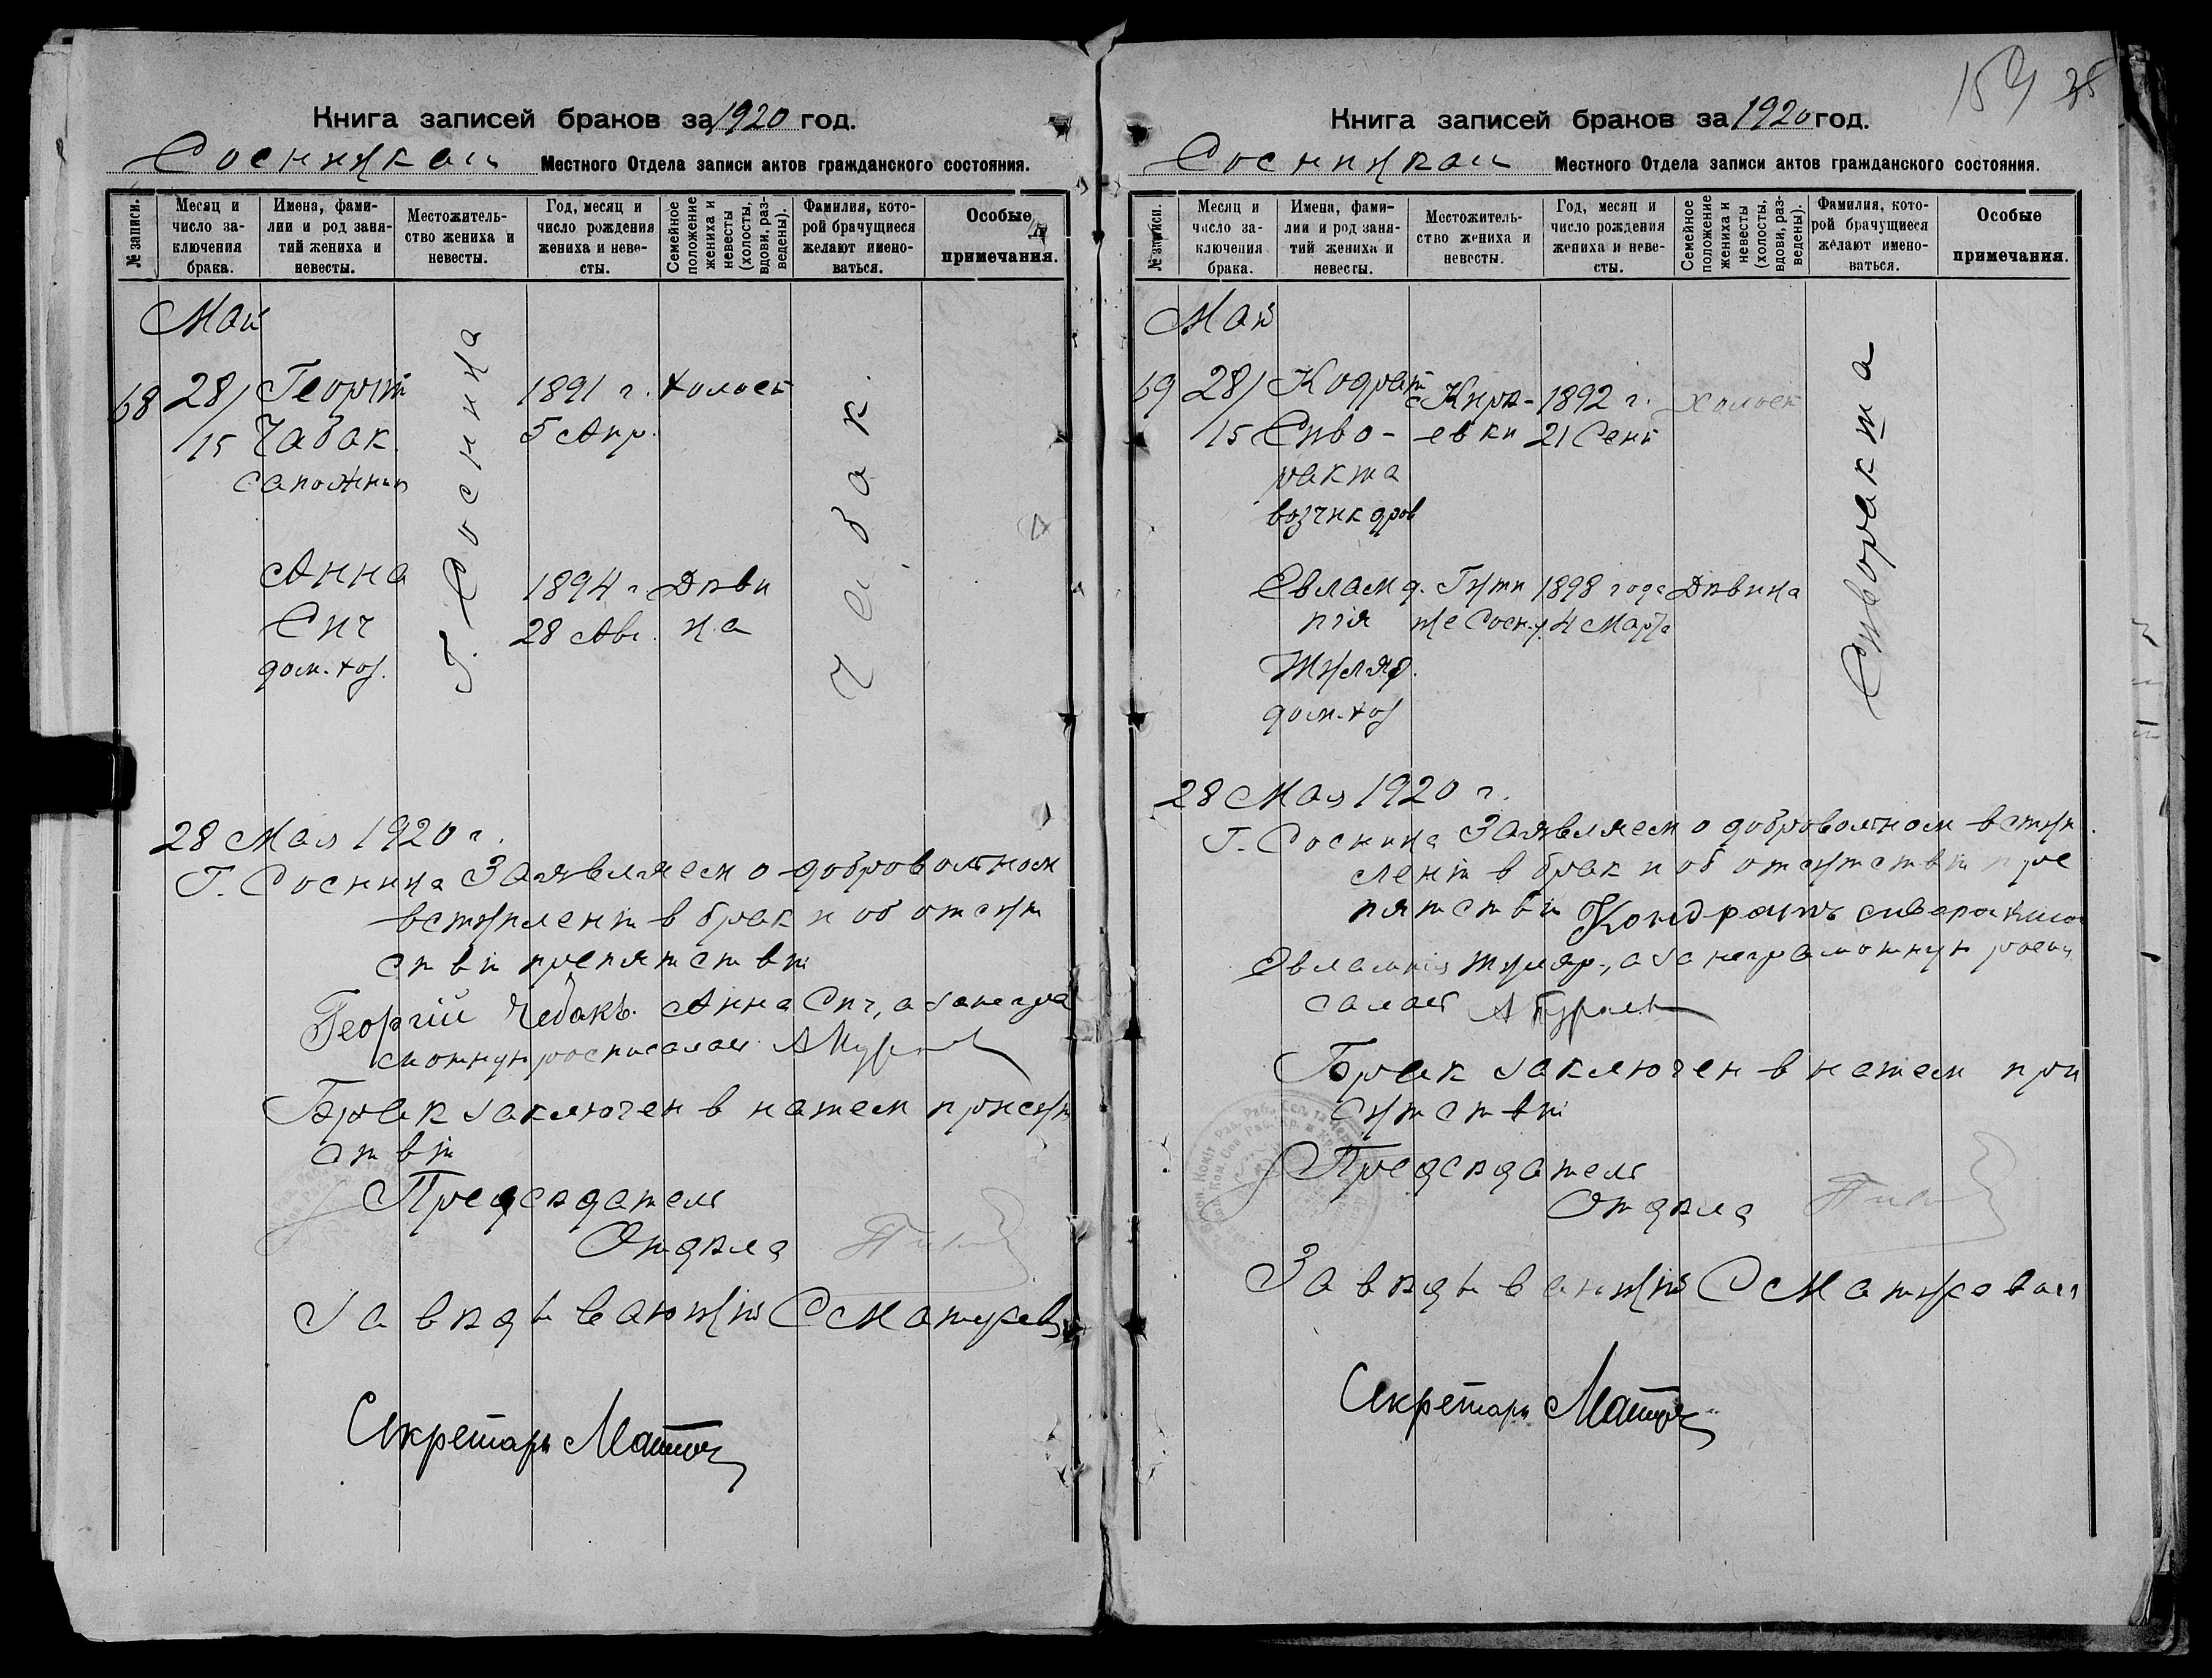 Книга записей браков за 1920 год.
Сосницкаи Местного Отдела записи актов гражданского состояния.
№ записи.
Месяц и число заключения брака.
Имена, фамилии и род занятий жениха и невесты.
Местожительство жениха и невесты.
Год, месяц и число рождения жениха и невесты.
Семейное положение жениха и невесты (холосты, вдовы, разведены).
Фамилия, которой брачущиеся желают именоваться.
Особые примечания.
Май
68 28/ Георгій 1891 г. холост
/15 Чабак 5 Апр.
сапожник
г. Сосница
Чебак.
Анна 1894 г. Дѣви
Сич 28 Авг. ца
дом. хоз.
28 Мая 1920 г.
Г. Сосница Заявляем о добровольном
вступленіи в брак и об отсут
ствіи препятствій
Георгій Чебакъ. Анна Сич, а за негра
мотную росписался
Брак заключен в нашем присут
ствіи
Председатель
Отдѣла
Завѣдывающій
Секретарь
159 35
Книга записей браков за 1920 год.
Сосницкаи Местного Отдела записи актов гражданского состояния.
№ записи.
Месяц и число заключения брака.
Имена, фамилии и род занятий жениха и невесты.
Местожительство жениха и невесты.
Год, месяц и число рождения жениха и невесты.
Семейное положение жениха и невесты (холосты, вдовы, разведены).
Фамилия, которой брачущиеся желают именоваться.
Особые примечания.
Май
69 28/ Кодрат с Кирѣ- 1892 г. холост
/15 Сиво- евки 21 Сент
ракша
возчик дров
Сиворакша
Евлам д. Гути 1898 года Дѣвица
пія же Сосн. у. 4 Марта
Жуляр.
дом. хоз
28 Мая 1920 г.
Г. Сосница Заявляем о добровольном вступ
леніи в брак и об отсутствіи пре
пятствій Кондратъ сиваракша
Евлампія Жуляр., а за неграмотную роспи
сался
Брак заключен в нашем при
сутствіи
Председатель
Отдѣла
Завѣдывающій
Секретарь